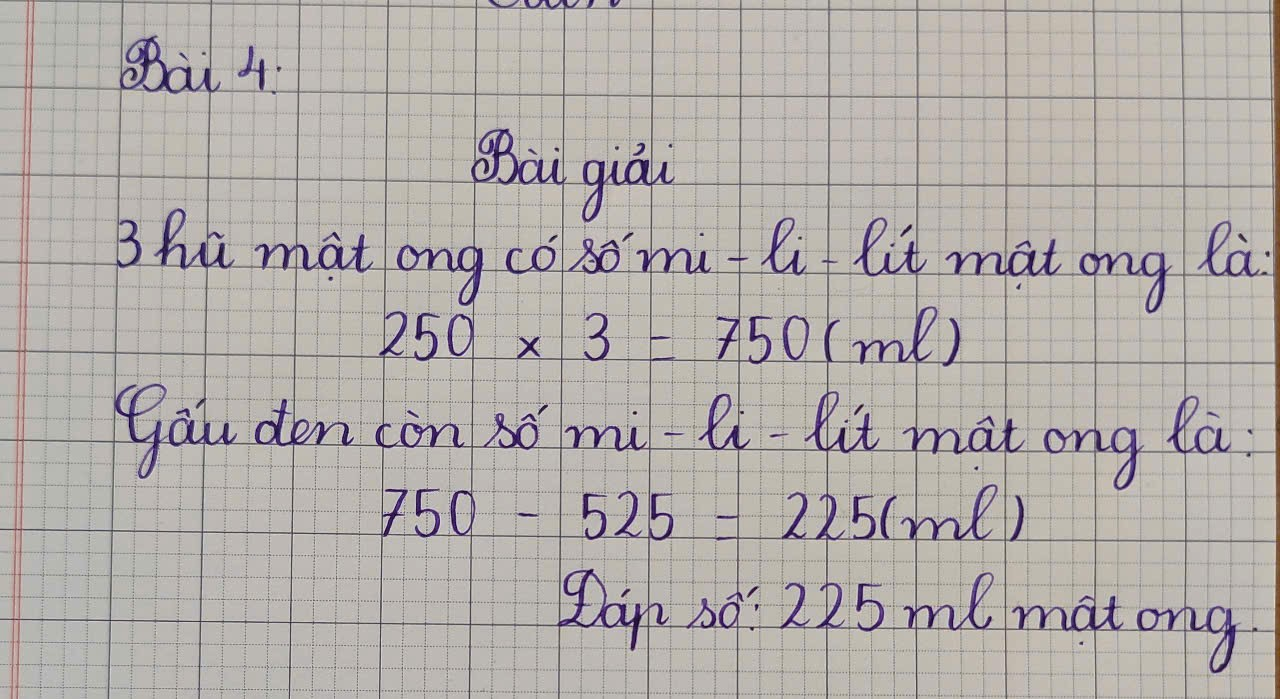 Bài 4:
Bài giải
3 hũ mật ong có số mi - li - lít mật ong là:
250 × 3 = 750 (ml)
Gấu đen còn số mi - li - lít mật ong là:
750 - 525 = 225 (ml)
Đáp số: 225 ml mật ong.